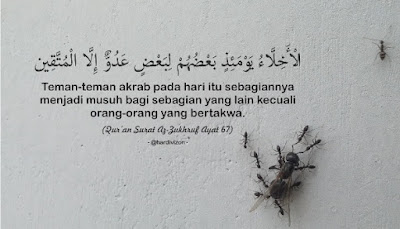 الْأَخِلَّاءُ يَوْمَئِذٍ بَعْضُهُمْ لِبَعْضٍ عَدُوٌّ إِلَّا الْمُتَّقِين
Teman-teman akrab pada hari itu sebagiannya
menjadi musuh bagi sebagian yang lain kecuali
orang-orang yang bertakwa.
(Qur'an Surat Az-Zukhruf Ayat 67)
- @hardivizon -